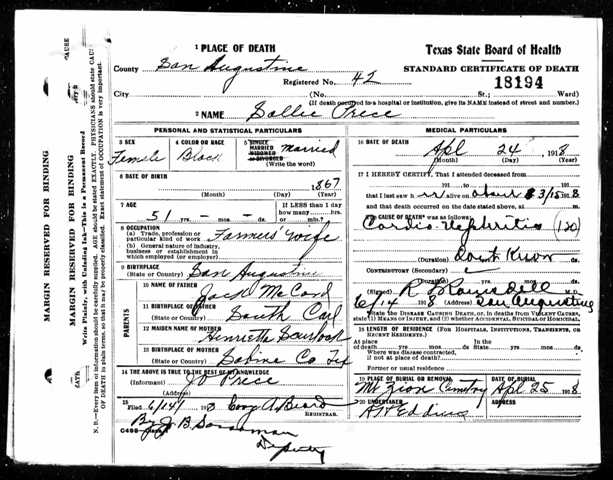 1 PLACE OF DEATH
Texas State Board of Health
County San Augustine
STANDARD CERTIFICATE OF DEATH
Registered No. 42
18194
City (No. St.; Ward)
(If death occurred in a hospital or institution, give its NAME instead of street and number.)
2 NAME Sallie Price
PERSONAL AND STATISTICAL PARTICULARS
3 SEX
Female
4 COLOR OR RACE
Black
5 SINGLE
MARRIED
WIDOWED
or DIVORCED
Married
(Write the word)
6 DATE OF BIRTH
1867
(Month) (Day) (Year)
7 AGE
51 yrs. - mos. - ds.
IF LESS than 1 day
how many hrs.
or min.?
8 OCCUPATION
(a) Trade, profession or
particular kind of work Farmers' Wife
(b) General nature of industry,
business or establishment in
which employed (or employer)
9 BIRTHPLACE
(State or Country) San Augustine
PARENTS
10 NAME OF FATHER
Jack McCord
11 BIRTHPLACE OF FATHER
(State or Country) South Car
12 MAIDEN NAME OF MOTHER
Henrietta Scurlock
13 BIRTHPLACE OF MOTHER
(State or Country) Sabine Co. Tex
14 THE ABOVE IS TRUE TO THE BEST OF MY KNOWLEDGE
(Informant) Jo Price
(Address)
15
Filed 6/14/ 1918 A. Beard
REGISTRAR.
By B
Deputy
MEDICAL PARTICULARS
16 DATE OF DEATH
Apl 24, 1918
(Month) (Day) (Year)
17 I HEREBY CERTIFY, That I attended deceased from
that I last saw h er alive on about 3/15 1918
and that death occurred on the date stated above, at m.
The CAUSE OF DEATH was as follows:
Cardio-nephritis (120)
(Duration) Don't Know ds.
CONTRIBUTORY (Secondary)
(Duration) yrs. mos. ds.
(Signed) R M.D.
6/14 1918 (Address) San Augustine
State the DISEASE CAUSING DEATH, or, in deaths from VIOLENT CAUSES,
state (1) MEANS OF INJURY, and (2) whether ACCIDENTAL, SUICIDAL or HOMICIDAL.
18 LENGTH OF RESIDENCE (FOR HOSPITALS, INSTITUTIONS, TRANSIENTS, OR
RECENT RESIDENTS.)
At place
of death yrs. mos. ds. State yrs. mos. ds.
Where was disease contracted,
if not at place of death?
Former or usual residence
19 PLACE OF BURIAL OR REMOVAL
Mt Zion Cemetry
DATE OF BURIAL
Apl 25 1918
20 UNDERTAKER
Eddins
ADDRESS
MARGIN RESERVED FOR BINDING
MARGIN RESERVED FOR BINDING
Write Plainly, with Unfading Ink—This is a Permanent Record
N. B.—Every item of information should be carefully supplied. AGE should be stated EXACTLY. PHYSICIANS should state CAUSE
OF DEATH in plain terms, so that it may be properly classified. Exact statement of OCCUPATION is very important.